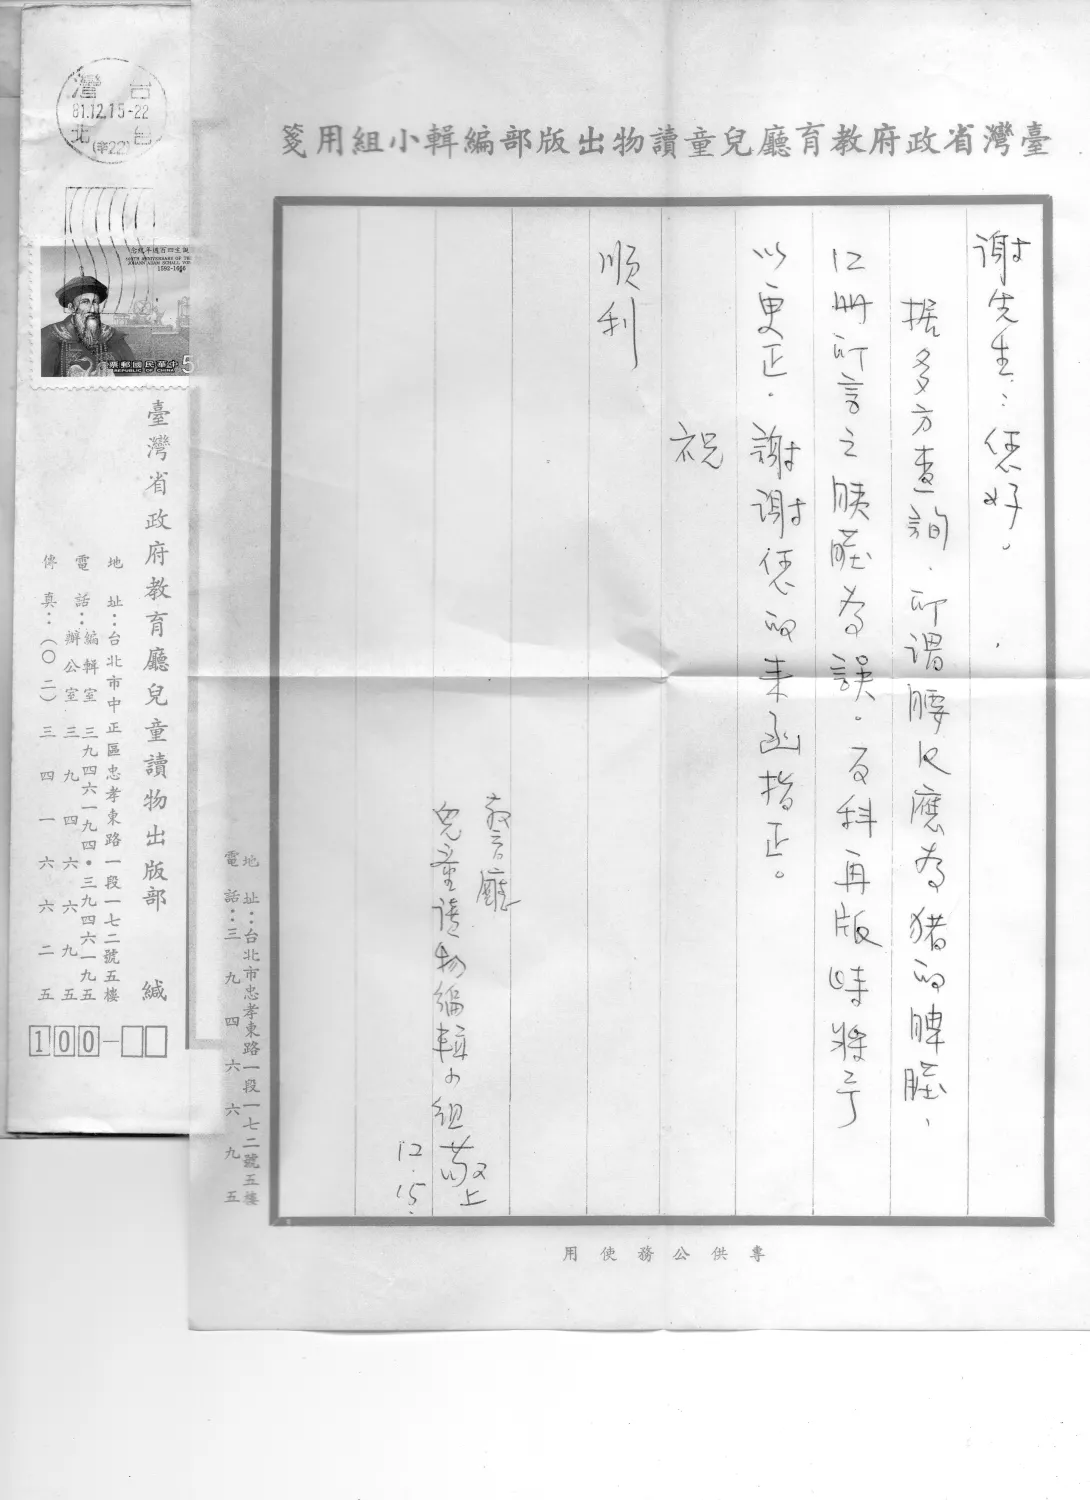 臺灣省政府教育廳兒童讀物出版部編輯小組用箋
谢先生：您好。
据多方查詢，所谓腰尺應为猪的脾脏，
12册所言之胰脏为誤。百科再版時将予
以更正。謝谢您的来函指正。
祝
順利
教育廳
兒童讀物編輯小組敬上
12.15.
專供公務使用
地址：台北市忠孝東路一段一七二號五樓
電話：三九四六六九五
台灣
81.12.15-22
台北
誕生四百週年紀念
JOHANN ADAM SCHALL VON
1592-1666
中華民國郵票
REPUBLIC OF CHINA
5
臺灣省政府教育廳兒童讀物出版部 緘
地址：台北市中正區忠孝東路一段一七二號五樓
電話：編輯室 三九四六一九四•三九四六一九五
辦公室 三九四六六九五
傳真：（〇二）三四一六六二五
100-